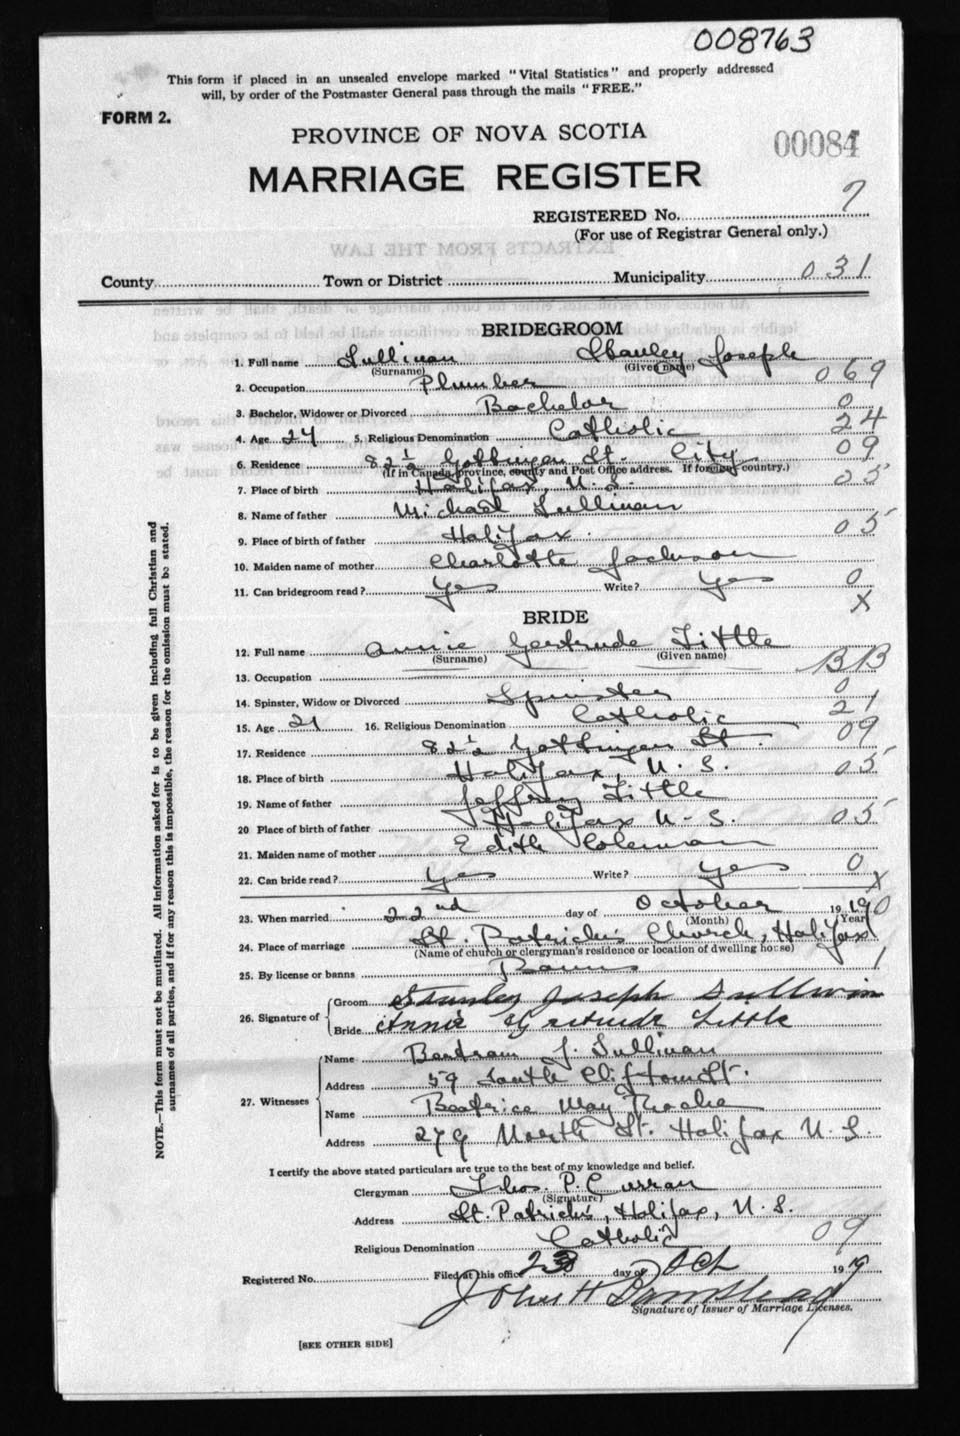 008763
This form if placed in an unsealed envelope marked "Vital Statistics" and properly addressed
will, by order of the Postmaster General pass through the mails "FREE."
FORM 2.
PROVINCE OF NOVA SCOTIA
00084
MARRIAGE REGISTER
REGISTERED No. 7
(For use of Registrar General only.)
EXTRACTS FROM THE LAW
County Town or District Municipality 031
BRIDEGROOM
1. Full name Sullivan Stanley Joseph
(Surname) (Given name)
2. Occupation Plumber 069
3. Bachelor, Widower or Divorced Bachelor 0
4. Age 24 5. Religious Denomination Catholic 24
6. Residence 82½ Gottingen St. City. 09
(If in Canada, province, county and Post Office address. If foreign country.)
7. Place of birth Halifax, N.S. 05
8. Name of father Michael Sullivan
9. Place of birth of father Halifax. 05
10. Maiden name of mother Charlotte Jackson
11. Can bridegroom read? Yes Write? Yes 0
X
BRIDE
12. Full name Annie Gertrude Tittle
(Surname) (Given name)
13. Occupation BB
14. Spinster, Widow or Divorced Spinster 0
15. Age 21 16. Religious Denomination Catholic 21
17. Residence 82½ Gottingen St. 09
18. Place of birth Halifax, N.S. 05
19. Name of father Jeffrey Tittle
20 Place of birth of father Halifax N-S. 05
21. Maiden name of mother Edith Coleman
22. Can bride read? Yes Write? Yes 0
X
23. When married 22nd day of October 1919 0
(Month) (Year)
24. Place of marriage St. Patrick's Church, Halifax
(Name of church or clergyman's residence or location of dwelling house)
25. By license or banns Banns 1
26. Signature of Groom Stanley Joseph Sullivan
Bride Annie Gertrude Tittle
27. Witnesses
Name Bertram J. Sullivan
Address 59 South Clifton St.
Name Beatrice May
Address 279 North St. Halifax N.S.
I certify the above stated particulars are true to the best of my knowledge and belief.
Clergyman Thos. P. Curran
(Signature)
Address St. Patrick's, Halifax, N.S.
Religious Denomination Catholic 09
Registered No. Filed at this office 23 day of Oct 1919
John H
Signature of Issuer of Marriage Licenses.
[SEE OTHER SIDE]
NOTE.—This form must not be mutilated. All information asked for is to be given including full Christian and
surnames of all parties, and if for any reason this is impossible, the reason for the omission must be stated.